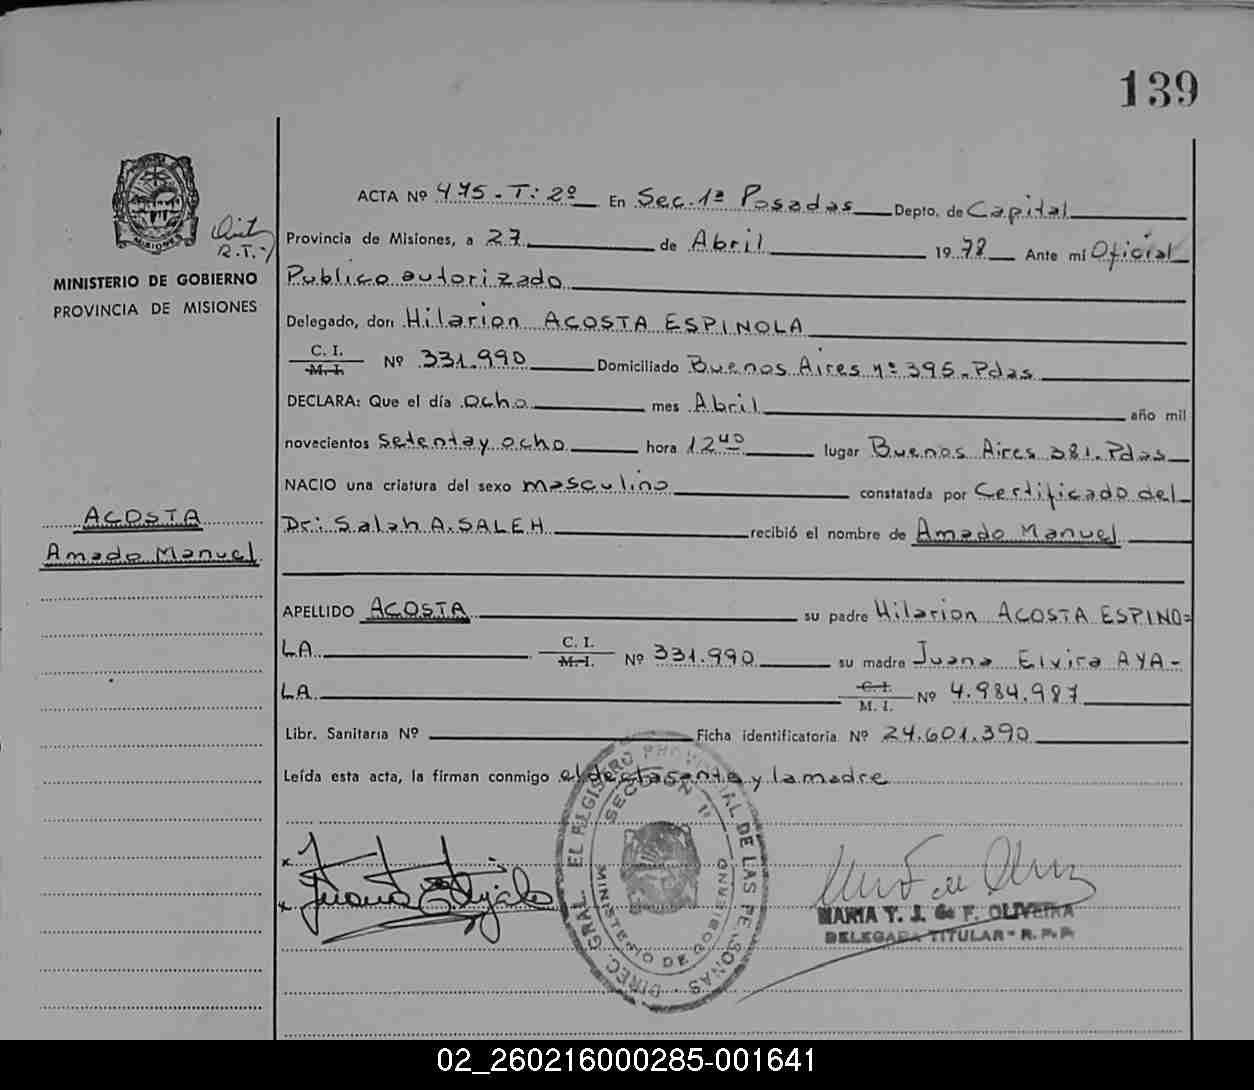 139
ACTA Nº 475 - T: 2º En Sec. 1ª Posadas Depto. de Capital
Provincia de Misiones, a 27 de Abril 1978 Ante mí Oficial
R.T.
MISIONES
MINISTERIO DE GOBIERNO
PROVINCIA DE MISIONES
Publico autorizado
Delegado, don Hilarion ACOSTA ESPINOLA
C. I.
M. I. Nº 331.990 Domiciliado Buenos Aires nº 395. Pdas
DECLARA: Que el día ocho mes Abril año mil
novecientos setenta y ocho hora 12 40 lugar Buenos Aires 381. Pdas
NACIO una criatura del sexo masculino constatada por Certificado del
Dr: Salah A. SALEH recibió el nombre de Amado Manuel
ACOSTA
Amado Manuel
APELLIDO ACOSTA su padre Hilarion ACOSTA ESPINO=
LA C. I.
M. I. Nº 331.990 su madre Juana Elvira AYA-
LA C. I.
M. I. Nº 4.984.987
Libr. Sanitaria Nº Ficha identificatoria Nº 24.601.390
Leída esta acta, la firman conmigo el declarante y la madre
DIREC. GRAL. EL REGISTRO PROVINCIAL DE LAS PERSONAS
SECCION 1ª
MINISTERIO DE GOBIERNO
MARIA Y. J. de F. OLIVEIRA
DELEGADA TITULAR - R. P. P.
02_260216000285-001641